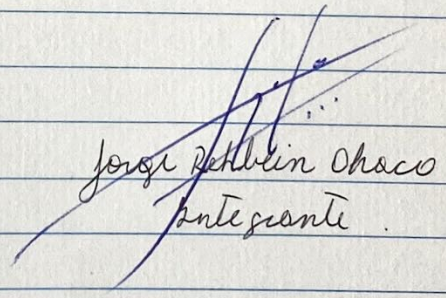 Jorge Rehbein Ohaco
Integrante.